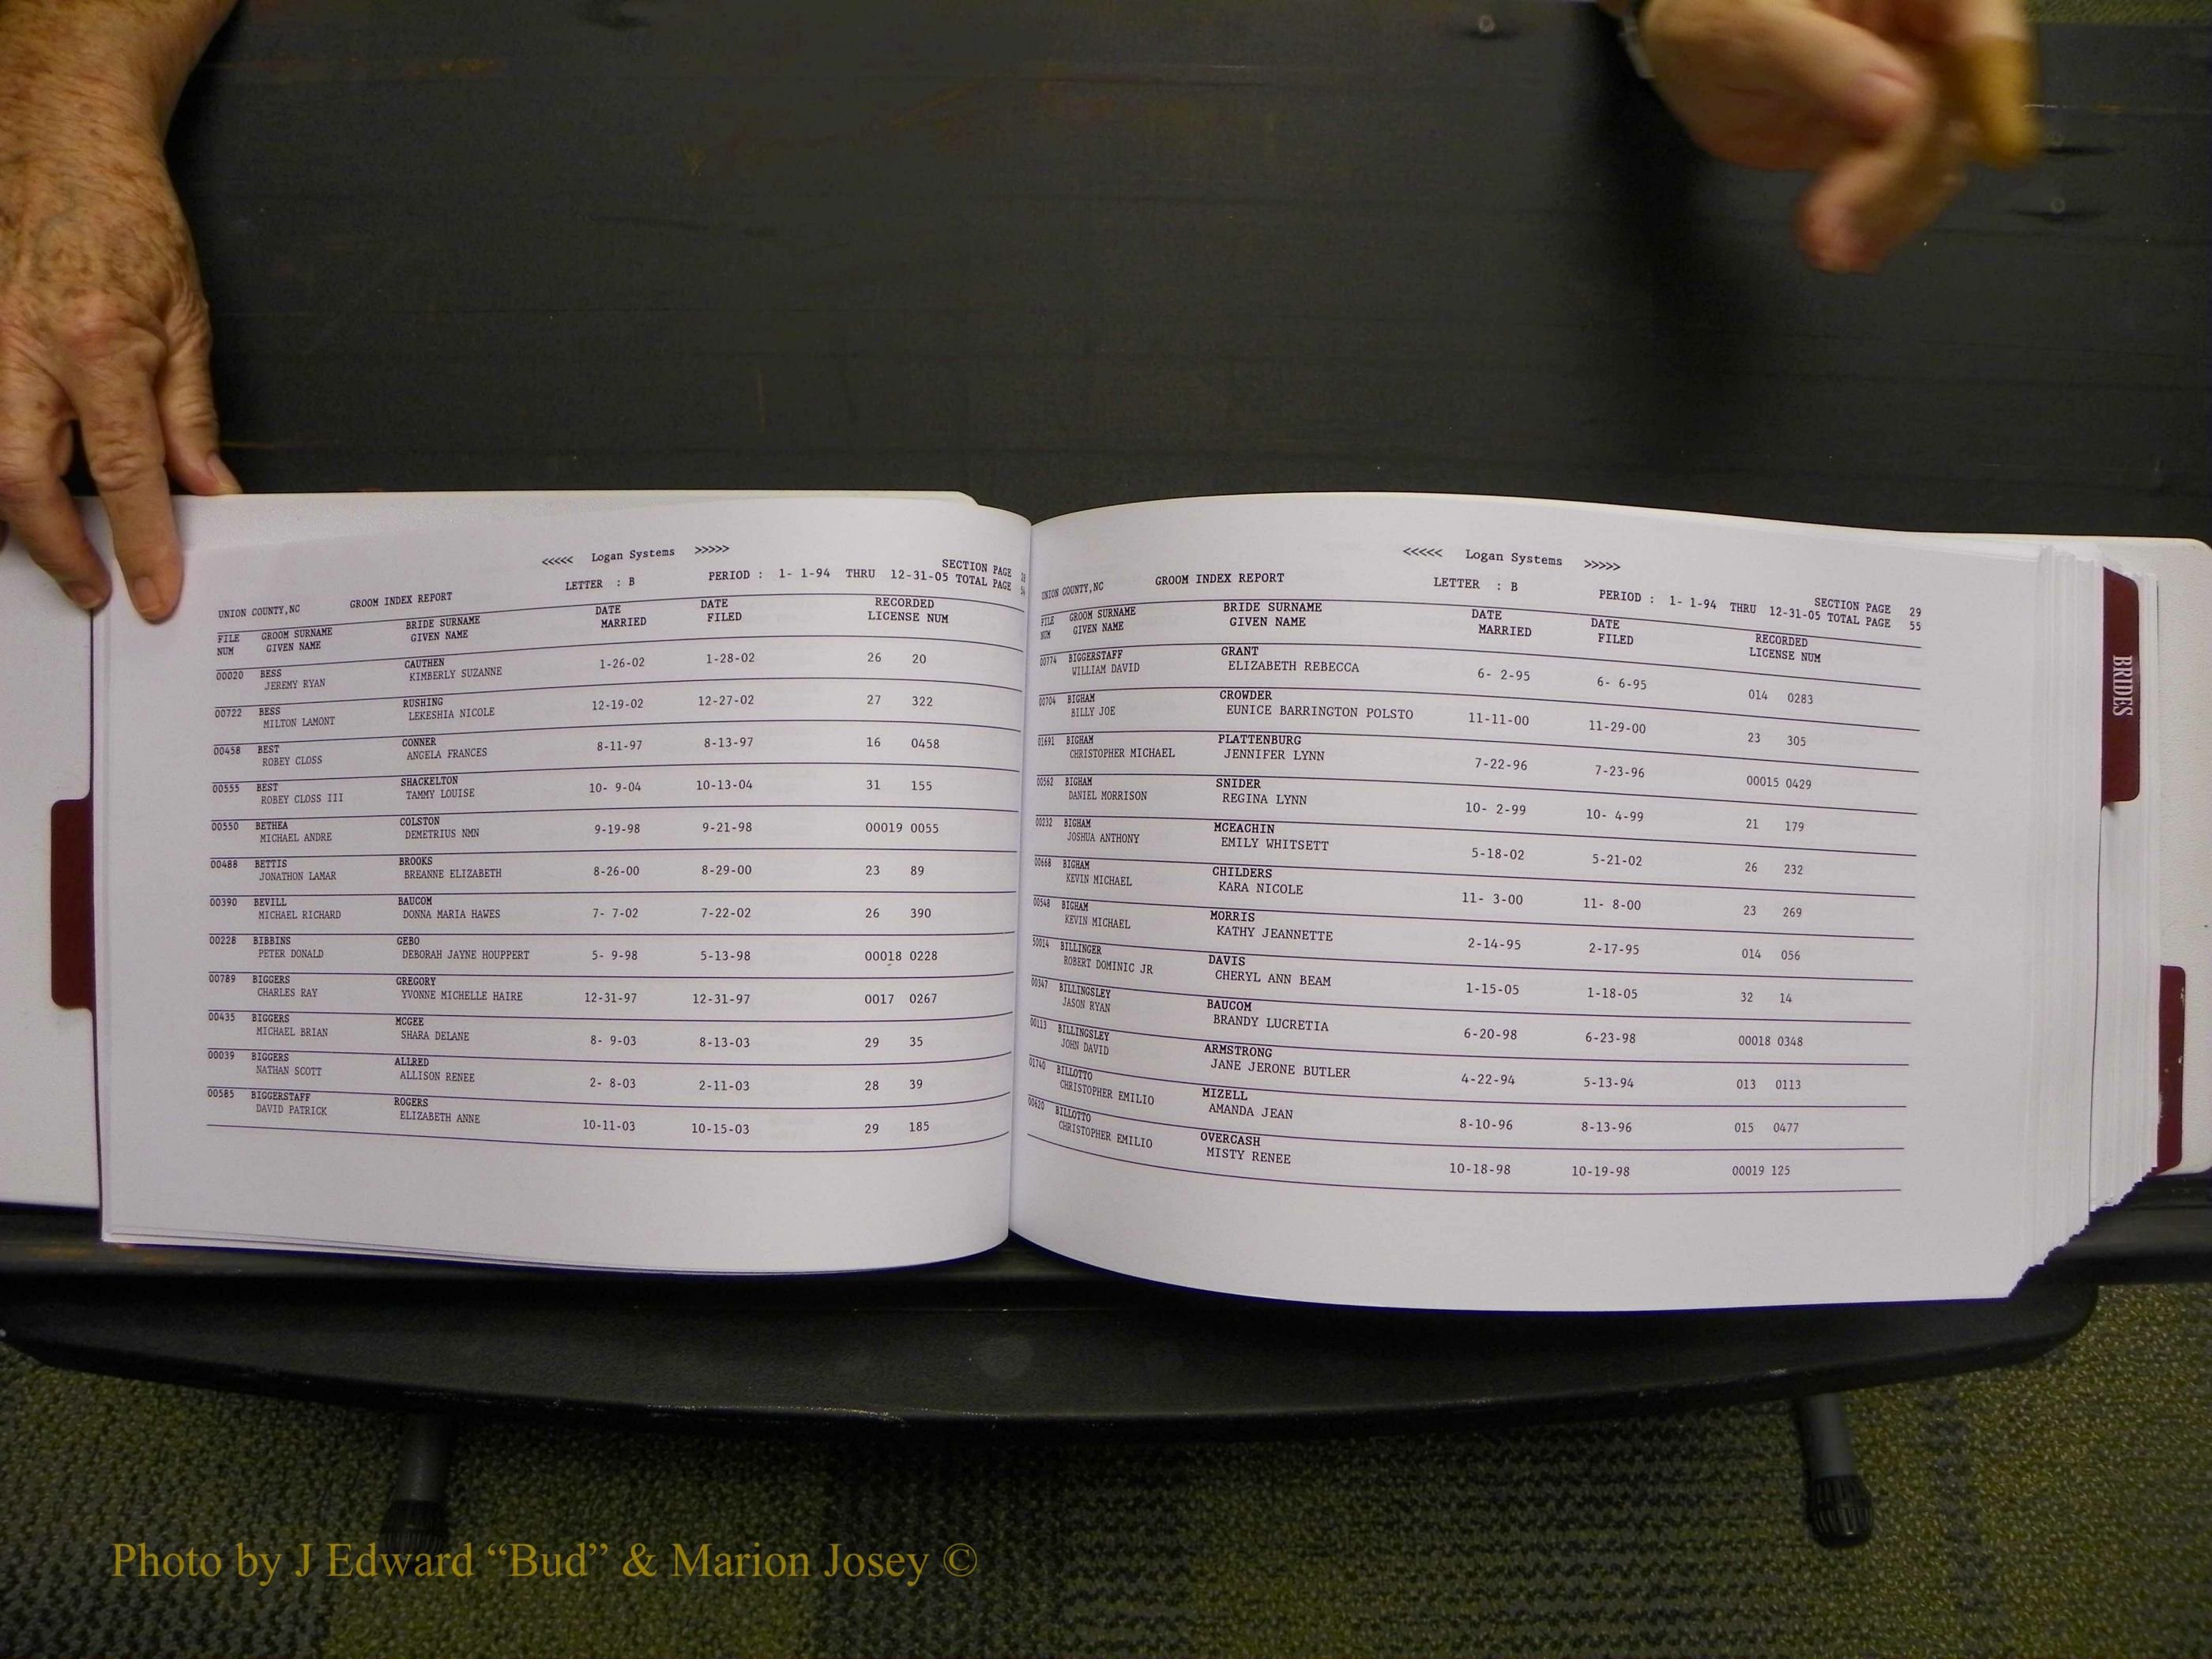 <<<<< Logan Systems >>>>>
SECTION PAGE 28
UNION COUNTY,NC GROOM INDEX REPORT LETTER : B PERIOD : 1- 1-94 THRU 12-31-05 TOTAL PAGE 54
FILE GROOM SURNAME BRIDE SURNAME DATE DATE RECORDED
NUM GIVEN NAME GIVEN NAME MARRIED FILED LICENSE NUM
00020 BESS CAUTHEN 1-26-02 1-28-02 26 20
JEREMY RYAN KIMBERLY SUZANNE
00722 BESS RUSHING 12-19-02 12-27-02 27 322
MILTON LAMONT LEKESHIA NICOLE
00458 BEST CONNER 8-11-97 8-13-97 16 0458
ROBEY CLOSS ANGELA FRANCES
00555 BEST SHACKELTON 10- 9-04 10-13-04 31 155
ROBEY CLOSS III TAMMY LOUISE
00550 BETHEA COLSTON 9-19-98 9-21-98 00019 0055
MICHAEL ANDRE DEMETRIUS NMN
00488 BETTIS BROOKS 8-26-00 8-29-00 23 89
JONATHON LAMAR BREANNE ELIZABETH
00390 BEVILL BAUCOM 7- 7-02 7-22-02 26 390
MICHAEL RICHARD DONNA MARIA HAWES
00228 BIBBINS GEBO 5- 9-98 5-13-98 00018 0228
PETER DONALD DEBORAH JAYNE HOUPPERT
00789 BIGGERS GREGORY 12-31-97 12-31-97 0017 0267
CHARLES RAY YVONNE MICHELLE HAIRE
00435 BIGGERS MCGEE 8- 9-03 8-13-03 29 35
MICHAEL BRIAN SHARA DELANE
00039 BIGGERS ALLRED 2- 8-03 2-11-03 28 39
NATHAN SCOTT ALLISON RENEE
00585 BIGGERSTAFF ROGERS 10-11-03 10-15-03 29 185
DAVID PATRICK ELIZABETH ANNE
<<<<< Logan Systems >>>>>
SECTION PAGE 29
UNION COUNTY,NC GROOM INDEX REPORT LETTER : B PERIOD : 1- 1-94 THRU 12-31-05 TOTAL PAGE 55
FILE GROOM SURNAME BRIDE SURNAME DATE DATE RECORDED
NUM GIVEN NAME GIVEN NAME MARRIED FILED LICENSE NUM
00774 BIGGERSTAFF GRANT 6- 2-95 6- 6-95 014 0283
WILLIAM DAVID ELIZABETH REBECCA
00704 BIGHAM CROWDER 11-11-00 11-29-00 23 305
BILLY JOE EUNICE BARRINGTON POLSTO
01691 BIGHAM PLATTENBURG 7-22-96 7-23-96 00015 0429
CHRISTOPHER MICHAEL JENNIFER LYNN
00562 BIGHAM SNIDER 10- 2-99 10- 4-99 21 179
DANIEL MORRISON REGINA LYNN
00232 BIGHAM MCEACHIN 5-18-02 5-21-02 26 232
JOSHUA ANTHONY EMILY WHITSETT
00668 BIGHAM CHILDERS 11- 3-00 11- 8-00 23 269
KEVIN MICHAEL KARA NICOLE
00548 BIGHAM MORRIS 2-14-95 2-17-95 014 056
KEVIN MICHAEL KATHY JEANNETTE
50014 BILLINGER DAVIS 1-15-05 1-18-05 32 14
ROBERT DOMINIC JR CHERYL ANN BEAM
00347 BILLINGSLEY BAUCOM 6-20-98 6-23-98 00018 0348
JASON RYAN BRANDY LUCRETIA
00113 BILLINGSLEY ARMSTRONG 4-22-94 5-13-94 013 0113
JOHN DAVID JANE JERONE BUTLER
01740 BILLOTTO MIZELL 8-10-96 8-13-96 015 0477
CHRISTOPHER EMILIO AMANDA JEAN
00620 BILLOTTO OVERCASH 10-18-98 10-19-98 00019 125
CHRISTOPHER EMILIO MISTY RENEE
BRIDES
Photo by J Edward “Bud” & Marion Josey ©